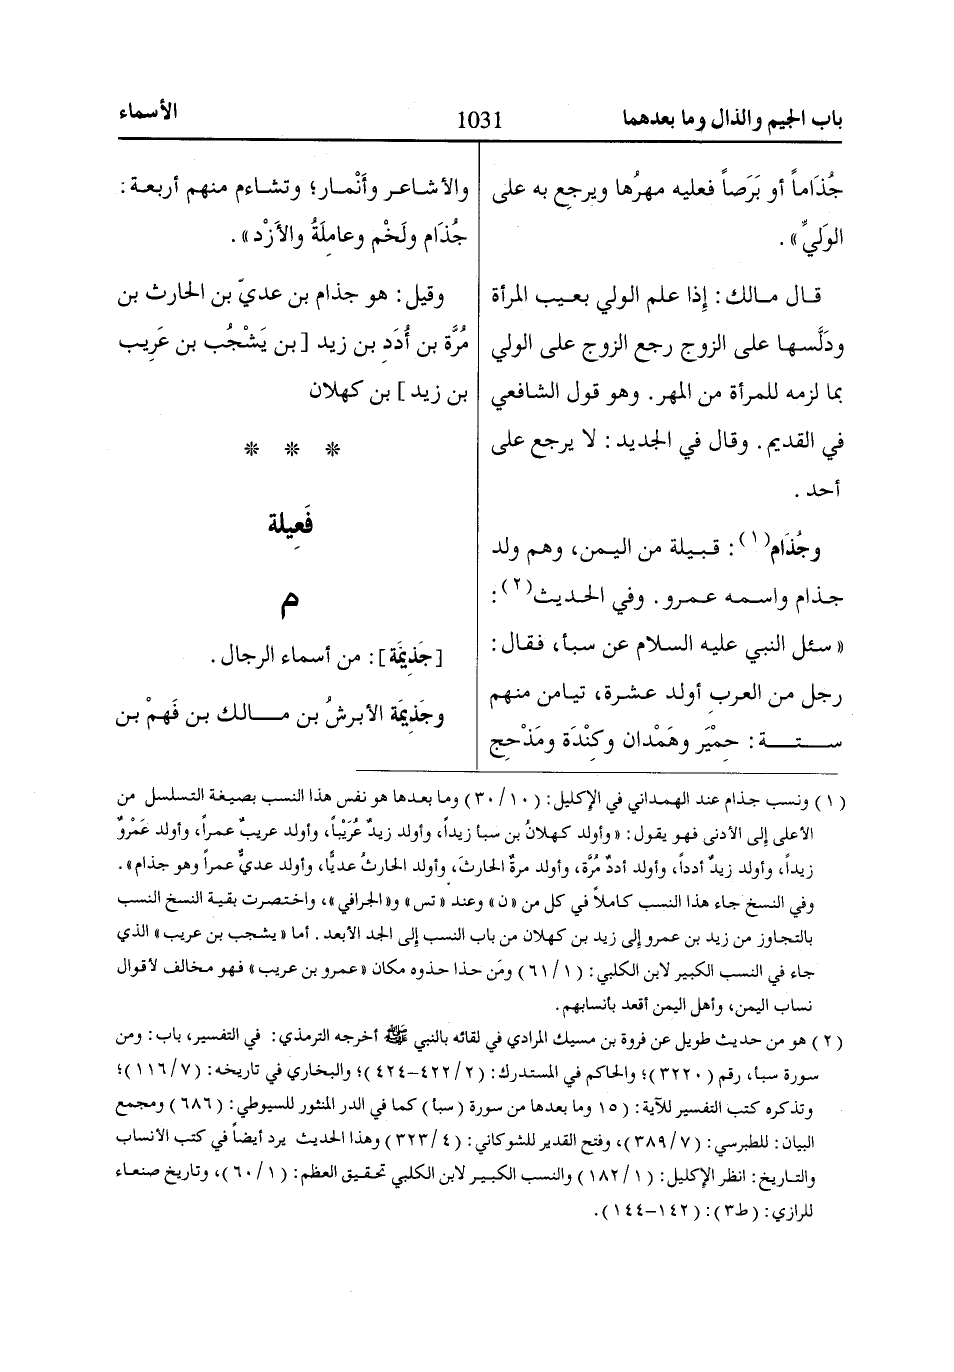 باب الجيم والذال وما بعدهما
1031
الأسماء
جُذَاماً أو بَرَصاً فعليه مهرُها ويرجع به على
الوَليِّ».
قال مالك: إِذا علم الولي بعيب المرأة
ودَلَّسها على الزوج رجع الزوج على الولي
بما لزمه للمرأة من المهر. وهو قول الشافعي
في القديم. وقال في الجديد: لا يرجع على
أحد.
وجُذَام(١): قبيلة من اليمن، وهم ولد
جذام واسمه عمرو. وفي الحديث(٢):
«سئل النبي عليه السلام عن سبأ، فقال:
رجل من العربِ أولد عشرة، تيامن منهم
ستة: حِمْيَر وهَمْدان وكِنْدَة ومَذْحِج
والأشاعر وأَنْمار؛ وتشاءم منهم أربعة:
جُذَام ولَخْم وعاملَةُ والأَزْد».
وقيل: هو جذام بن عديّ بن الحارث بن
مُرَّة بن أُدَد بن زيد [بن يَشْجُب بن عَرِيب
بن زيد] بن كهلان
* * *
فَعِيلة
م
[جَذِيمَة]: من أسماء الرجال.
وجَذِيمَة الأبرشُ بن مالك بن فَهمْ بن
(١) ونسب جذام عند الهمداني في الإكليل: (١٠/٣٠) وما بعدها هو نفس هذا النسب بصيغة التسلسل من
الأعلى إلى الأدنى فهو يقول: «وأولد كهلانُ بن سبأ زيداً، وأولد زيدٌ عُرَيْباً، وأولد عريبٌ عمراً، وأولد عَمْروٌ
زيداً، وأولد زيدٌ أدداً، وأولد أددٌ مُرَّة، وأولد مرةُ الحارثَ، وأولد الحارثُ عديًّا، وأولد عديٌّ عمراً وهو جذام».
وفي النسخ جاء هذا النسب كاملاً في كل من «ن» وعند «تس» و«الجرافي»، واختصرت بقية النسخ النسب
بالتجاوز من زيد بن عمرو إلى زيد بن كهلان من باب النسب إلى الجد الأبعد. أما «يشجب بن عريب» الذي
جاء في النسب الكبير لابن الكلبي: (١/٦١) ومَن حذا حذوه مكان «عمرو بن عريب» فهو مخالف لأقوال
نساب اليمن، وأهل اليمن أقعد بأنسابهم.
(٢) هو من حديث طويل عن فروة بن مسيك المرادي في لقائه بالنبي ﷺ أخرجه الترمذي: في التفسير، باب: ومن
سورة سبأ، رقم (٣٢٢٠)؛ والحاكم في المستدرك: (٢/٤٢٢-٤٢٤)؛ والبخاري في تاريخه: (٧/١١٦)؛
وتذكره كتب التفسير للآية: (١٥ وما بعدها من سورة (سبأ) كما في الدر المنثور للسيوطي: (٦٨٦) ومجمع
البيان: للطبرسي: (٧/٣٨٩)، وفتح القدير للشوكاني: (٤/٣٢٣) وهذا الحديث يرد أيضاً في كتب الأنساب
والتاريخ: انظر الإكليل: (١/١٨٢) والنسب الكبير لابن الكلبي تحقيق العظم: (١/٦٠)، وتاريخ صنعاء
للرازي: (ط٣): (١٤٢-١٤٤).